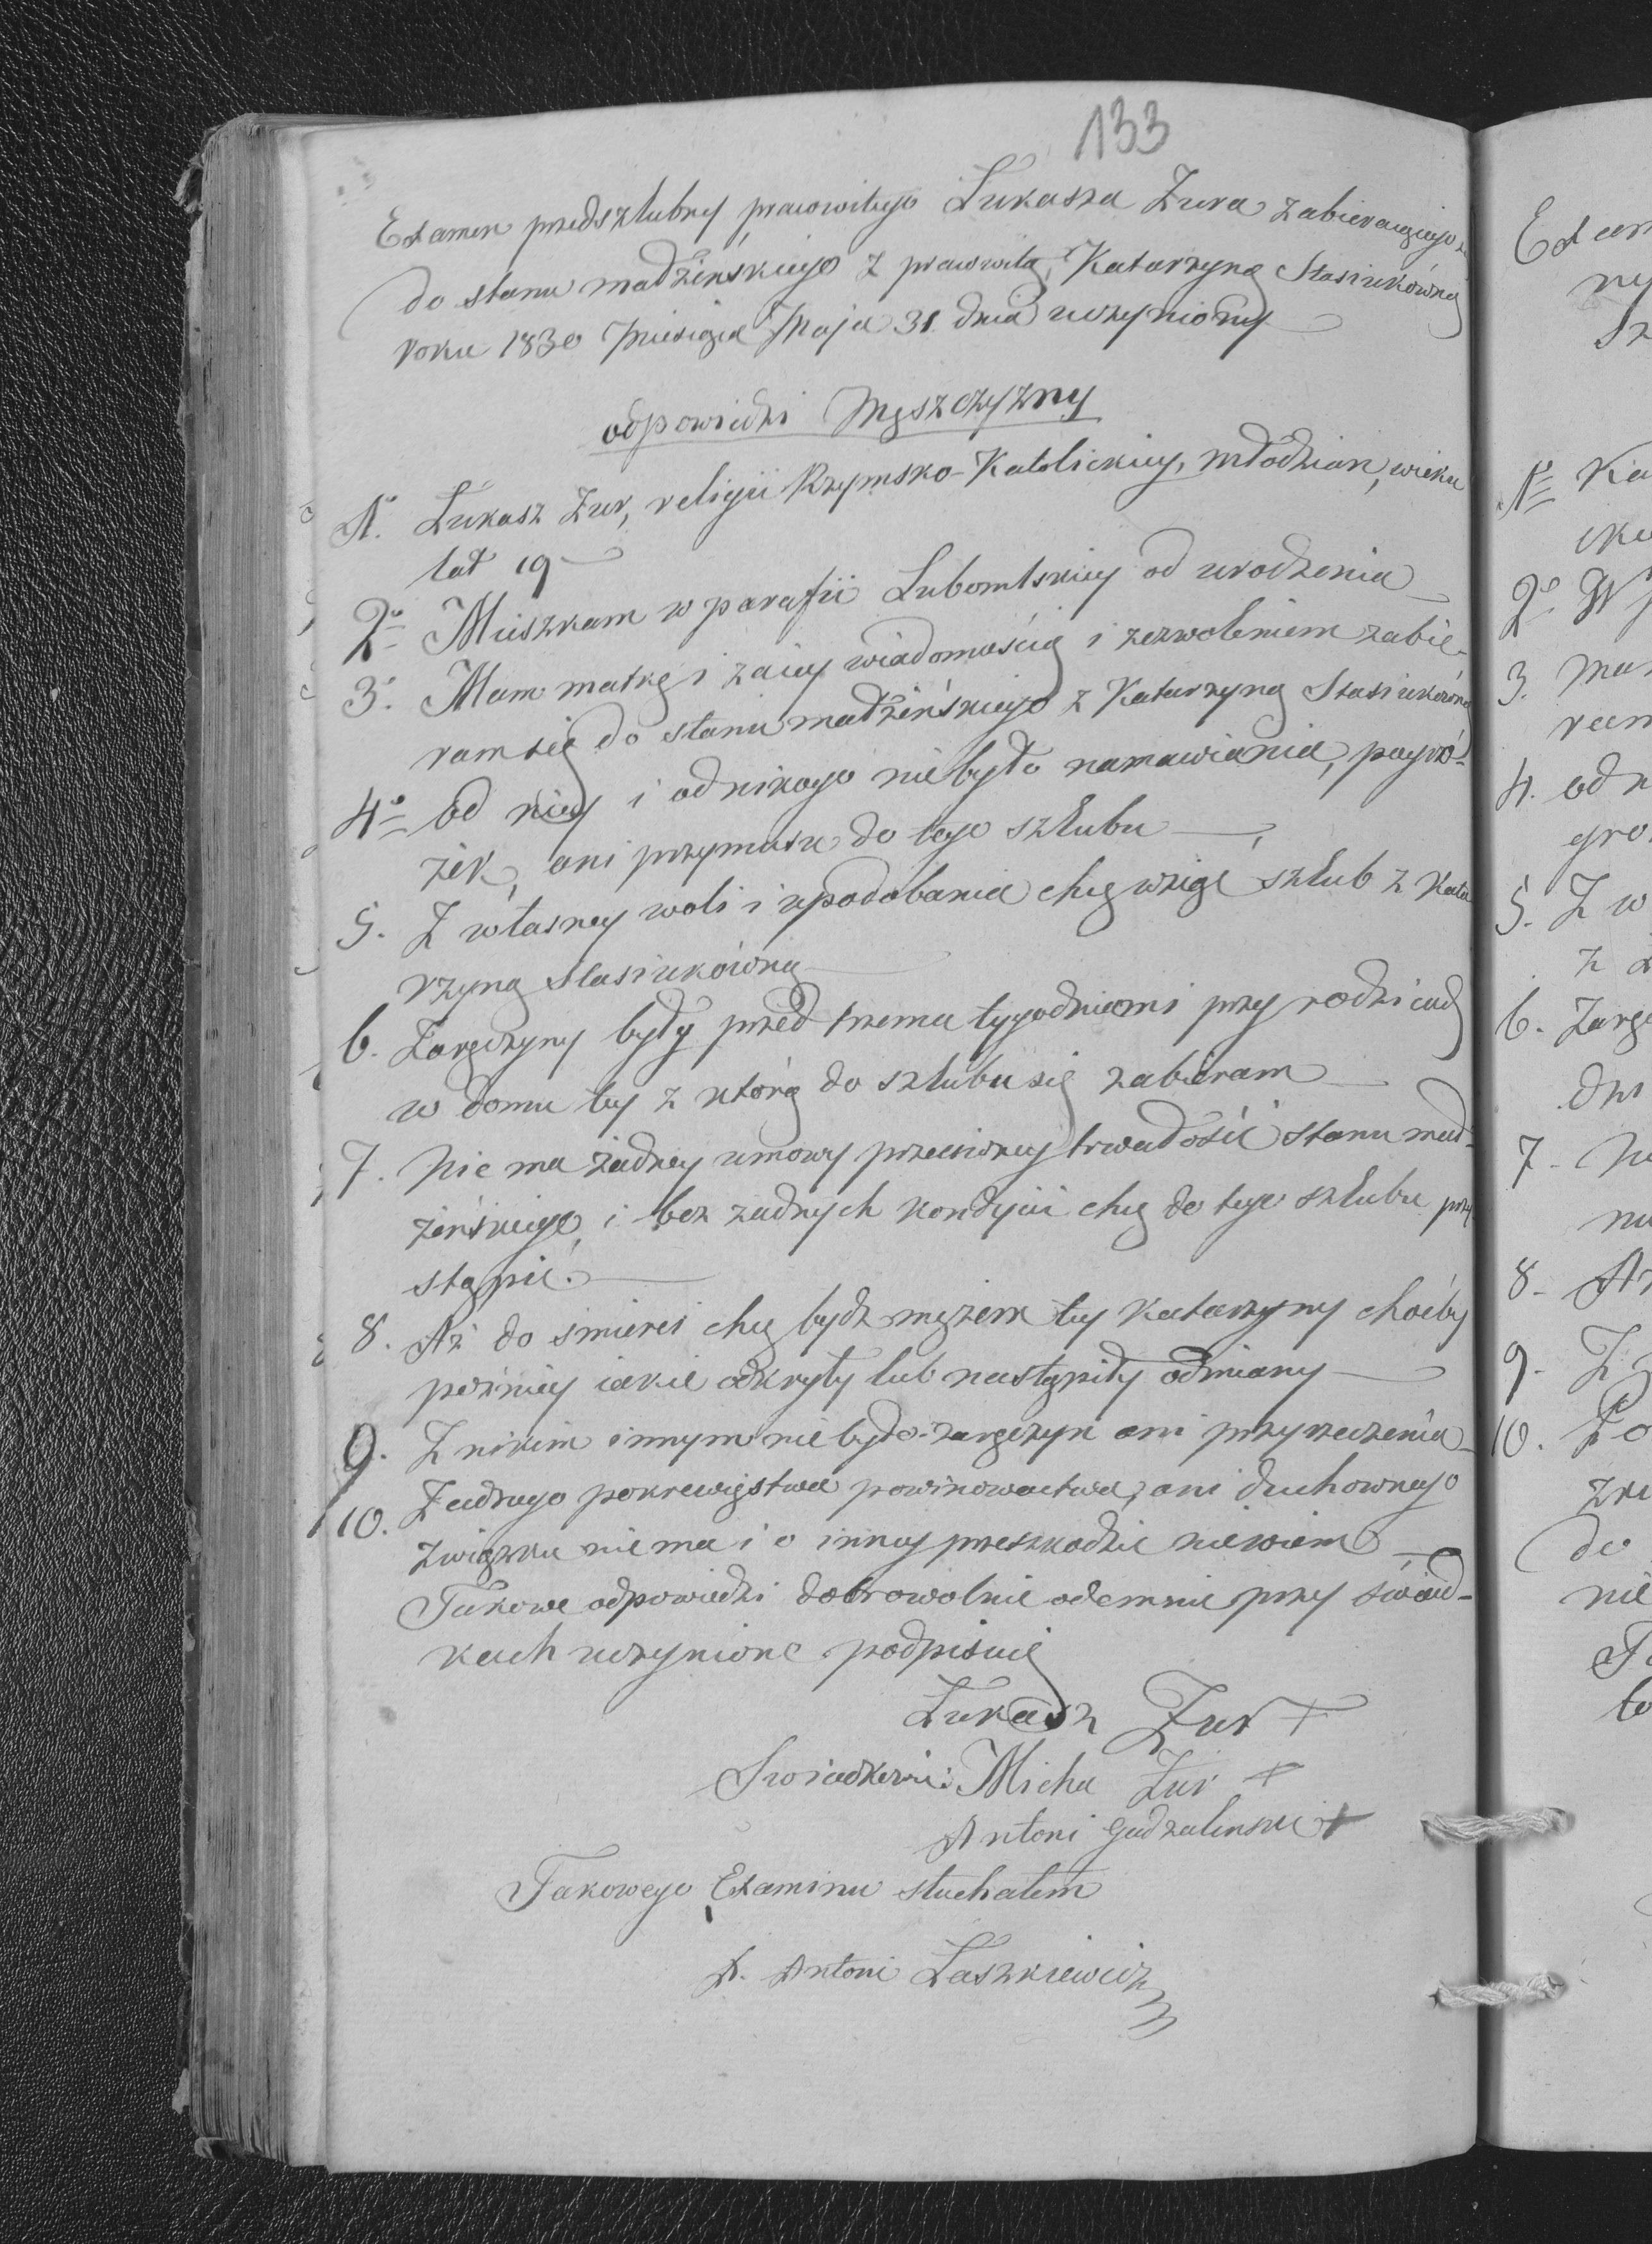 133
Examen przedszlubny prawowitego Łukasza Żura zabieraiącego
do stanu madżeńskiego z prawowitą Katarzyną Stasiukówną
roku 1830 Miesiąca Maja 31 dnia uczyniony
odpowiedzi Męszczyzny
1. Łukasz Żur, religii Rzymsko-Katolickiey, młodzian, wieku
lat 19
2º Mieszkam w parafii Lubomlskiey od urodzenia
3. Mam matkę i za iey wiadomością i zezwoleniem zabie-
ram się do stanu madżeńskiego z Katarzyną Stasiukówną
4º od niey i od nikogo nie było namawiania, pogró-
żek, ani przymusu do tego szlubu
5. Z własney woli i upodobania chcę wziąć szlub z Kata
rzyną Stasiukówną
6. Zaręczyny były przed trzema tygodniami przy rodzicach
w domu tey z którą do szlubu się zabieram
7. Nie ma żadney umowy przeciwney trwałości stanu mad-
żeńskiego, i bez żadnych kondycii chcę do tego szlubu przy
stąpić.
8. Aż do śmierci chcę bydź mężem tey Katarzyny choćby
pożniey iakie odkryły lub nastąpiły odmiany
9. Z nikim innym nie było zaręczyn ani przyrzeczenia
10. Żadnego pokrewięstwa powinowactwa, ani duchownego
związku nie ma i o inney przeszkodzie nie wiem
Takowe odpowiedzi dobrowolnie odemnie przy świad-
kach uczynione podpisuię
Łukasz Żur +
Swiadkowie: Micha Żur +
Antoni Gadzalinski +
Takowego Examinu słuchałem
X. Antoni Laszkiewicz
Exam
1º Ka
2º W
3. Ma
ram
4. od n
gro
5. Z w
z
6. Zarę
dni
7. Ni
8. Aż
9. Z
10. Ża
zwi
do
nie
Ta